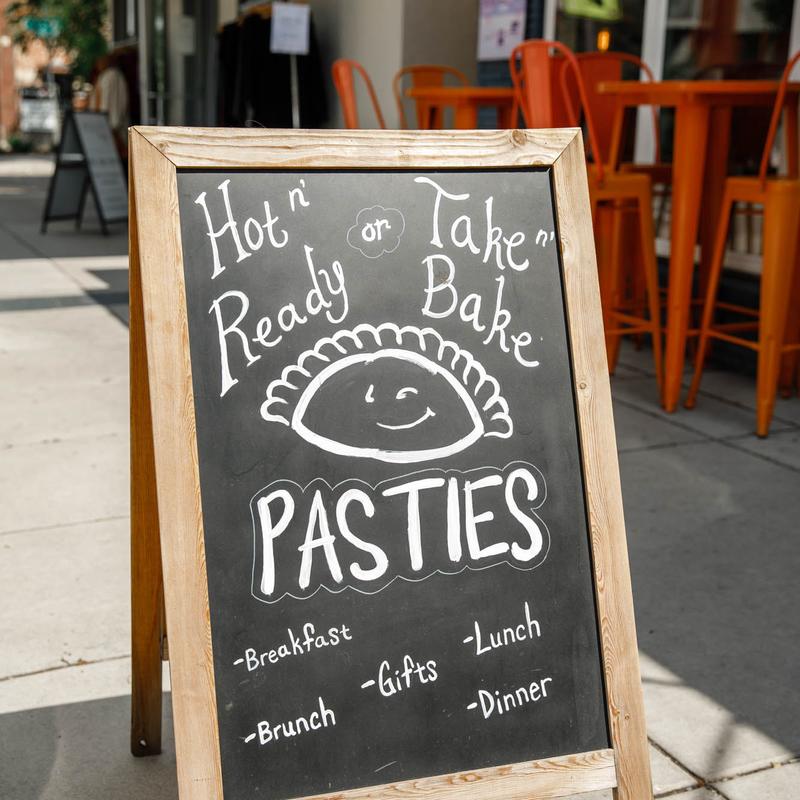 Hot n' Ready
or
Take n' Bake
PASTIES
-Breakfast
-Lunch
-Gifts
-Brunch
-Dinner